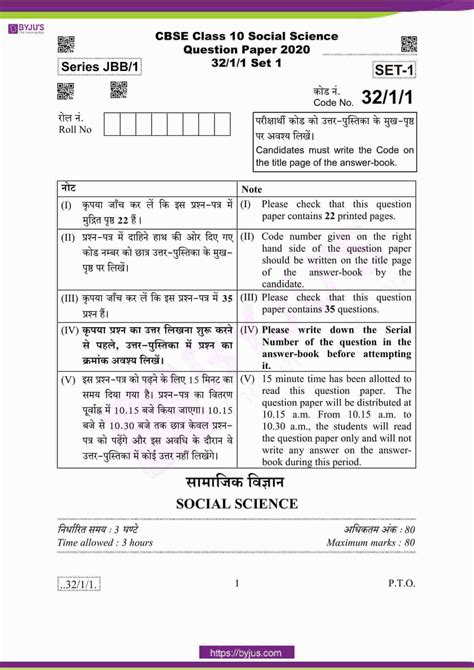 BYJU'S
The Learning App
CBSE Class 10 Social Science
Question Paper 2020
32/1/1 Set 1
Series JBB/1
SET-1
कोड नं.
Code No. 32/1/1
रोल नं.
Roll No
परीक्षार्थी कोड को उत्तर-पुस्तिका के मुख-पृष्ठ
पर अवश्य लिखें।
Candidates must write the Code on
the title page of the answer-book.
नोट
(I) कृपया जाँच कर लें कि इस प्रश्न-पत्र में
मुद्रित पृष्ठ 22 हैं।
(II) प्रश्न-पत्र में दाहिने हाथ की ओर दिए गए
कोड नम्बर को छात्र उत्तर-पुस्तिका के मुख-
पृष्ठ पर लिखें।
(III) कृपया जाँच कर लें कि इस प्रश्न-पत्र में 35
प्रश्न हैं।
(IV) कृपया प्रश्न का उत्तर लिखना शुरू करने
से पहले, उत्तर-पुस्तिका में प्रश्न का
क्रमांक अवश्य लिखें।
(V) इस प्रश्न-पत्र को पढ़ने के लिए 15 मिनट का
समय दिया गया है। प्रश्न-पत्र का वितरण
पूर्वाह्न में 10.15 बजे किया जाएगा। 10.15
बजे से 10.30 बजे तक छात्र केवल प्रश्न-
पत्र को पढ़ेंगे और इस अवधि के दौरान वे
उत्तर-पुस्तिका में कोई उत्तर नहीं लिखेंगे।
Note
(I) Please check that this question
paper contains 22 printed pages.
(II) Code number given on the right
hand side of the question paper
should be written on the title page
of the answer-book by the
candidate.
(III) Please check that this question
paper contains 35 questions.
(IV) Please write down the Serial
Number of the question in the
answer-book before attempting
it.
(V) 15 minute time has been allotted to
read this question paper. The
question paper will be distributed at
10.15 a.m. From 10.15 a.m. to
10.30 a.m., the students will read
the question paper only and will not
write any answer on the answer-
book during this period.
सामाजिक विज्ञान
SOCIAL SCIENCE
निर्धारित समय : 3 घण्टे
अधिकतम अंक : 80
Time allowed : 3 hours
Maximum marks : 80
..32/1/1.
1
P.T.O.
https://byjus.com